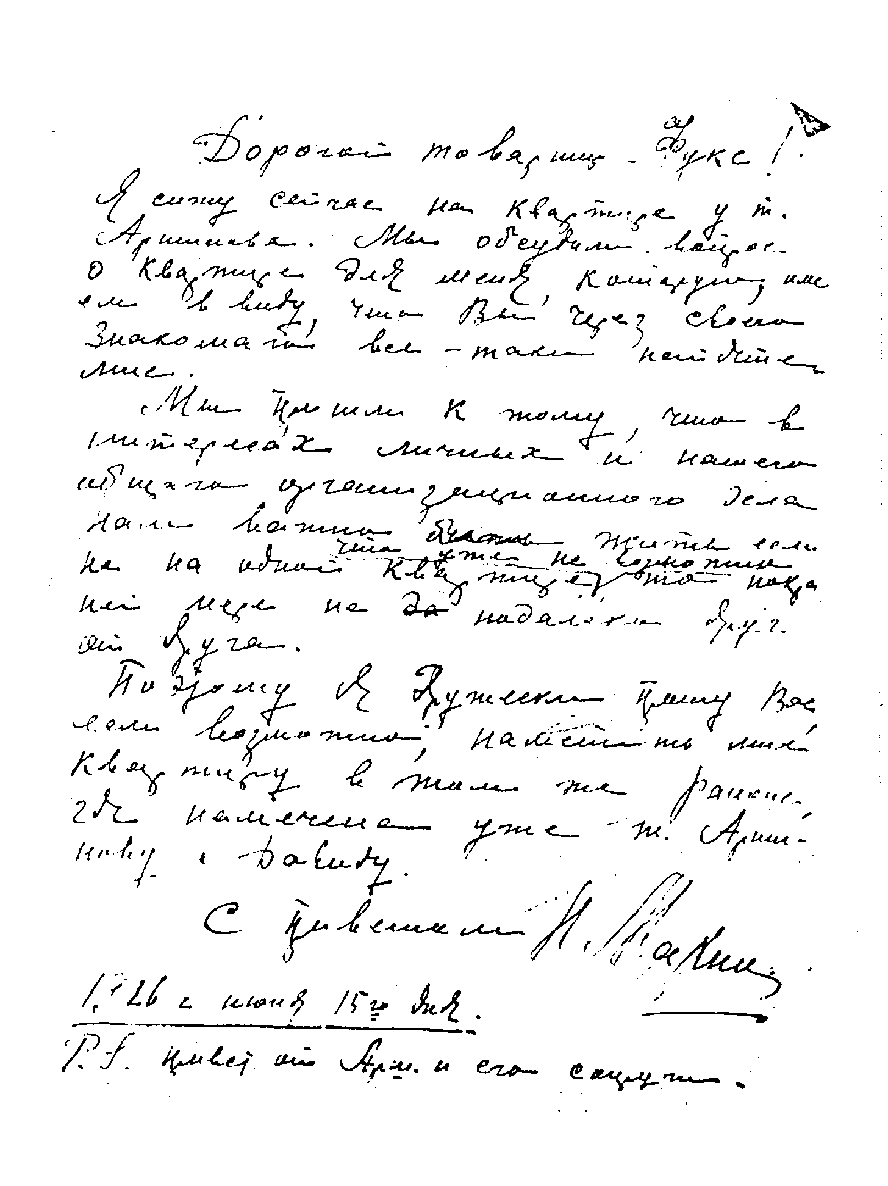 Дорогой товарищ Фукс!
Я сижу сейчас на квартире у т.
Аршинова. Мы обсудили вопрос
о квартире для меня,
ем в виду, что Вы через своего
знакомого все-таки найдете
мне.
Мы пришли к тому, что в
интересах личных и нашего
общего организационного дела
нам важно жить если
что уже не возможно
не на одной квартире, то по край
ней мере не да подалеки друг
от друга.
Поэтому я дружески прошу Вас,
если возможно, наметить мне
квартиру в том же районе,
где намечена уже т. Арши-
нову и Давиду.
С приветом Н. Махно
1926 г июня 15го дня.
P.S. привет от Арш. и его супруги.